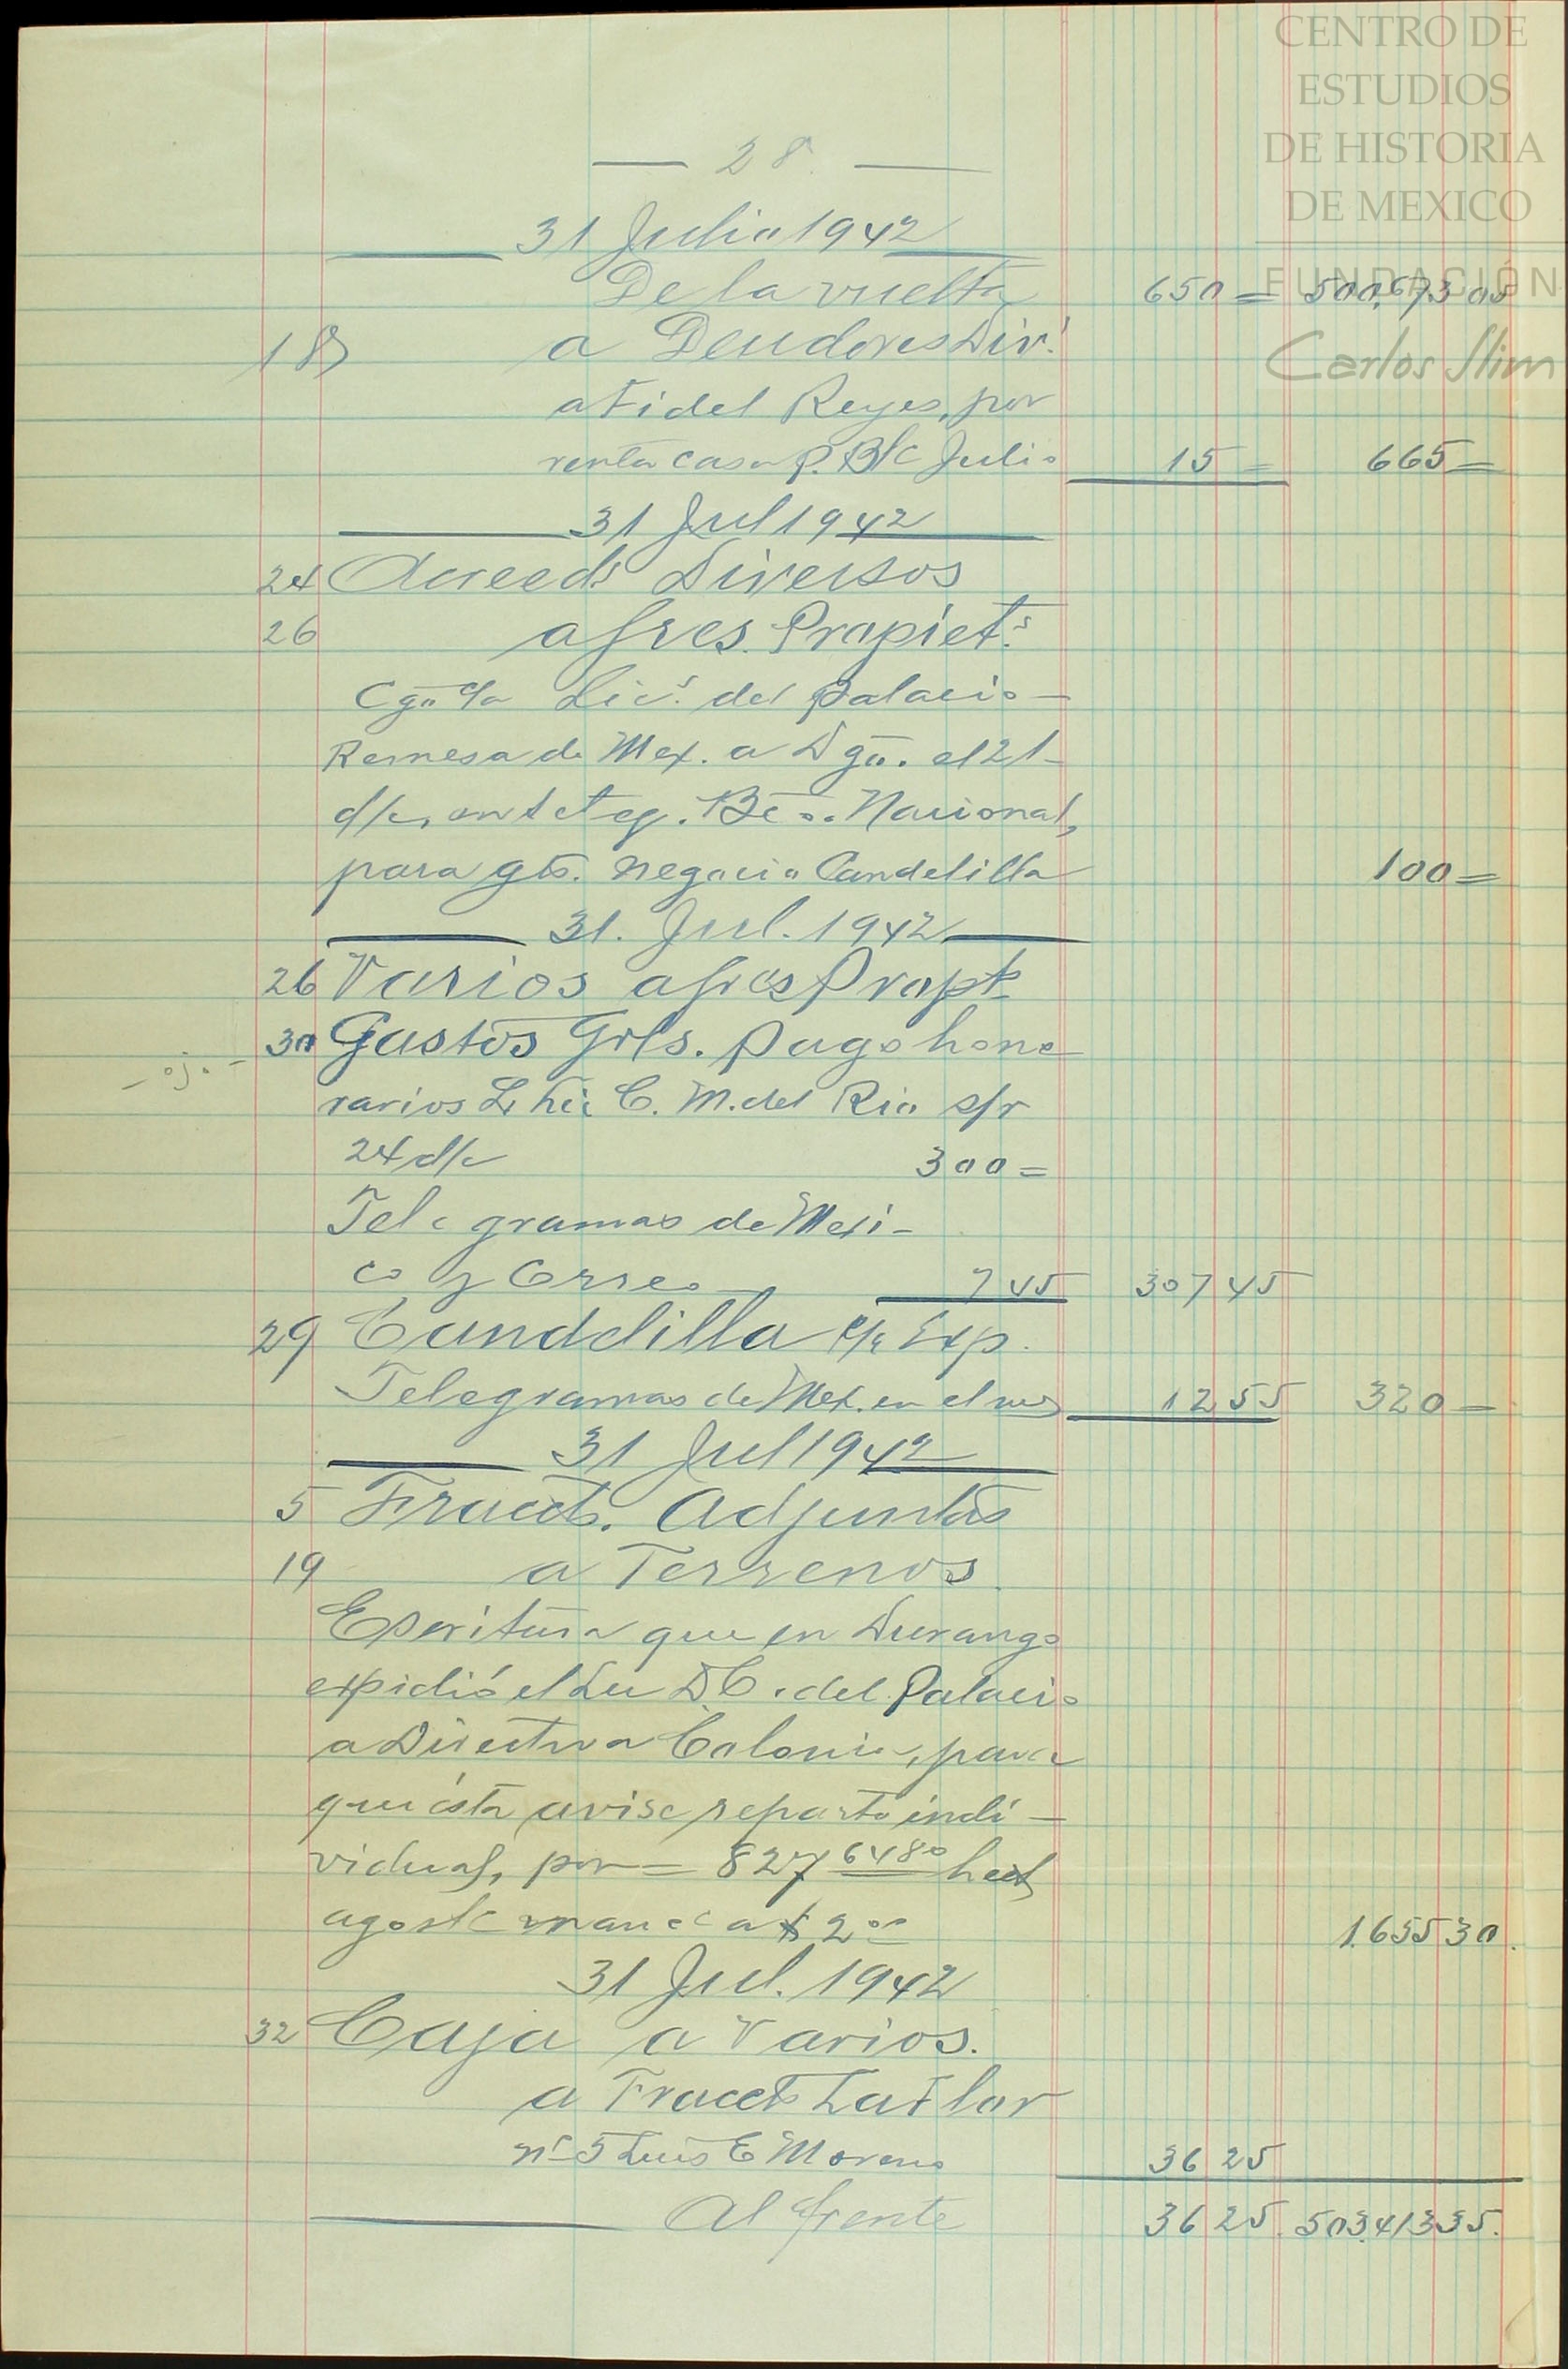 CENTRO DE
ESTUDIOS
DE HISTORIA
DE MEXICO
FUNDACIÓN
Carlos Slim
— 28 —
31 Julio 1942
De la vuelta 650 = 500,673 05
18 a Deudores Div.s
a Fidel Reyes, por
renta casa P. B/c Julio 15 = 665 =
31 Jul 1942
24 Acreeds Diversos
26 a Sres. Propiet.s
Cgo. c/a Lic.s del Palacio —
Remesa de Mex. a Dgo. el 21 —
d/c, Bco. Nacional,
para gts. negocio Candelilla 100 =
31. Jul. 1942
26 Varios a Sres Propts
- ojo - 30 Gastos Grls. Pago hono
rarios Lic C. M. del Rio s/r
24 d/c 300 =
Telegramas de Mexi -
co y Correo 7 45 307 45
29 Candelilla c/ Exp.
Telegramas de Mex. en el mes 12 55 320 —
31 Jul 1942
5 Fracts. Adjuntas
19 a Terrenos
Escritura que en Durango
expidió el Lic D. C. del Palacio
a Directiva Colonia, para
que ésta avise reparto indi -
vidual, por = 827 6480 hect
agost a $ 2 00 1.655 30.
31 Jul. 1942
32 Caja a Varios.
a Fracct La Flor
nº 5 Luis E Moreno 36 25
Al frente 36 25. 503.413 35.